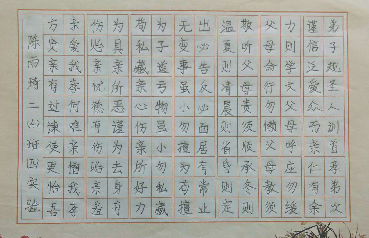 弟子规圣人训首孝弟次
谨信泛爱众而亲仁有余
力则学文父母呼应勿缓
父母命行勿懒父母教须
敬听父母责须顺承冬则
温夏则凊晨则省昏则定
出必告反必面居有常业
无变事虽小勿擅为苟擅
为子道亏物虽小勿私藏
苟私藏亲心伤亲所好力
为具亲所恶谨为去身有
伤贻亲忧德有伤贻亲羞
亲爱我孝何难亲憎我孝
方贤亲有过谏使更怡吾
陈雨琦二班四实验